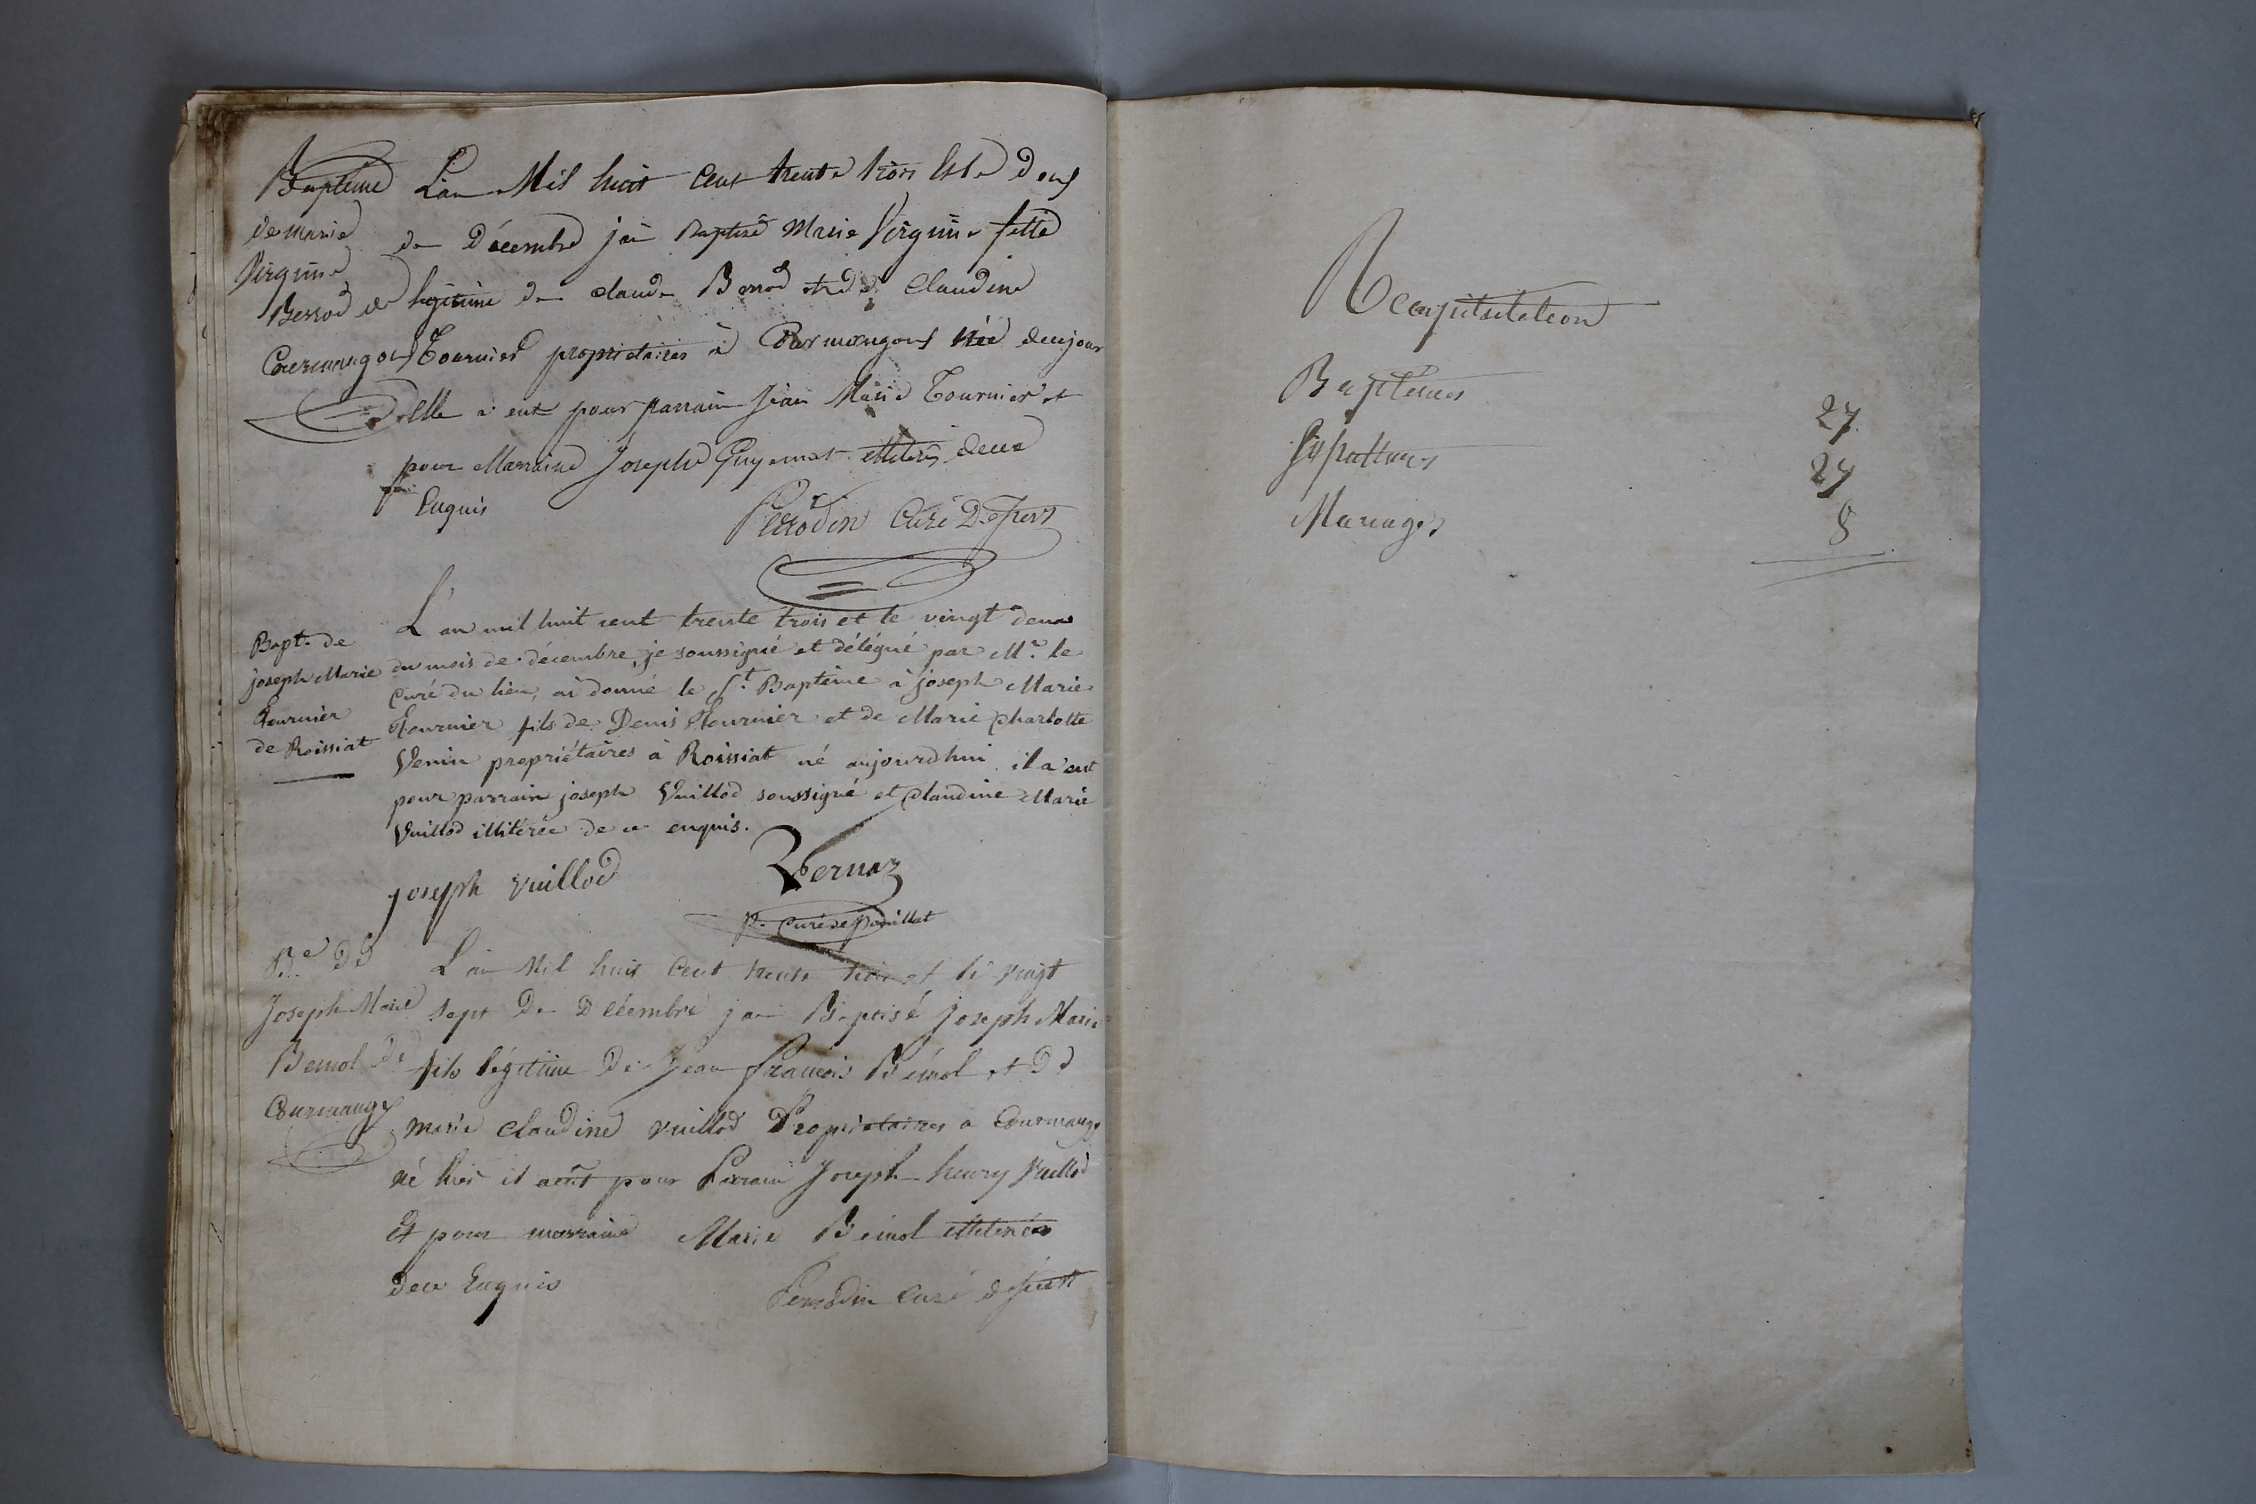 Baptême
de marie
Virginie
Berrod de
Courmangoux
L'an Mil huit Cent trente trois Et le Douz
de Décembre j'ai Baptisé Marie Virginie fille
légitime de claude Berrod et de Claudine
Tournier propriétaires à Courmangoux Née
elle a eut pour parrain Jean Marie Tournier et
pour Marraine Josephe Guyennet illiterés dece
Enquis
Perrodin Curé
Bapt. de
joseph Marie
fournier
de Roissiat
L'an mil huit cent trente trois et le vingt deux
du mois de décembre, je soussigné et délégué par Mr. le
curé du lieu, ai donné le St. Baptême à joseph Marie
fournier fils de Denis fournier et de Marie Charlotte
Venin propriétaires à Roissiat né aujourdhui il a eut
pour parrain joseph Vuillod soussigné et Claudine Marie
Vuillod illitérée de ce enquis.
joseph vuillod
Vernaz
p. curé de pouillat
Bme de
Joseph Marie
Beinol de
Courmangx
L'an Mil huit Cent trente trois et le vingt
sept De Décembre j'ai Baptisé joseph Marie
fils légitime De Jean françois Beinol et De
marie claudine vuillod Propriétaires a Courmangx
né hier il a eut pour Parrain Joseph henry Vuillod
Et pour marraine Marie Beinol illiterées
dece Enquis
Perrodin Curé
Recapitulation
Baptêmes 27
Sépultures 27
Mariages 8